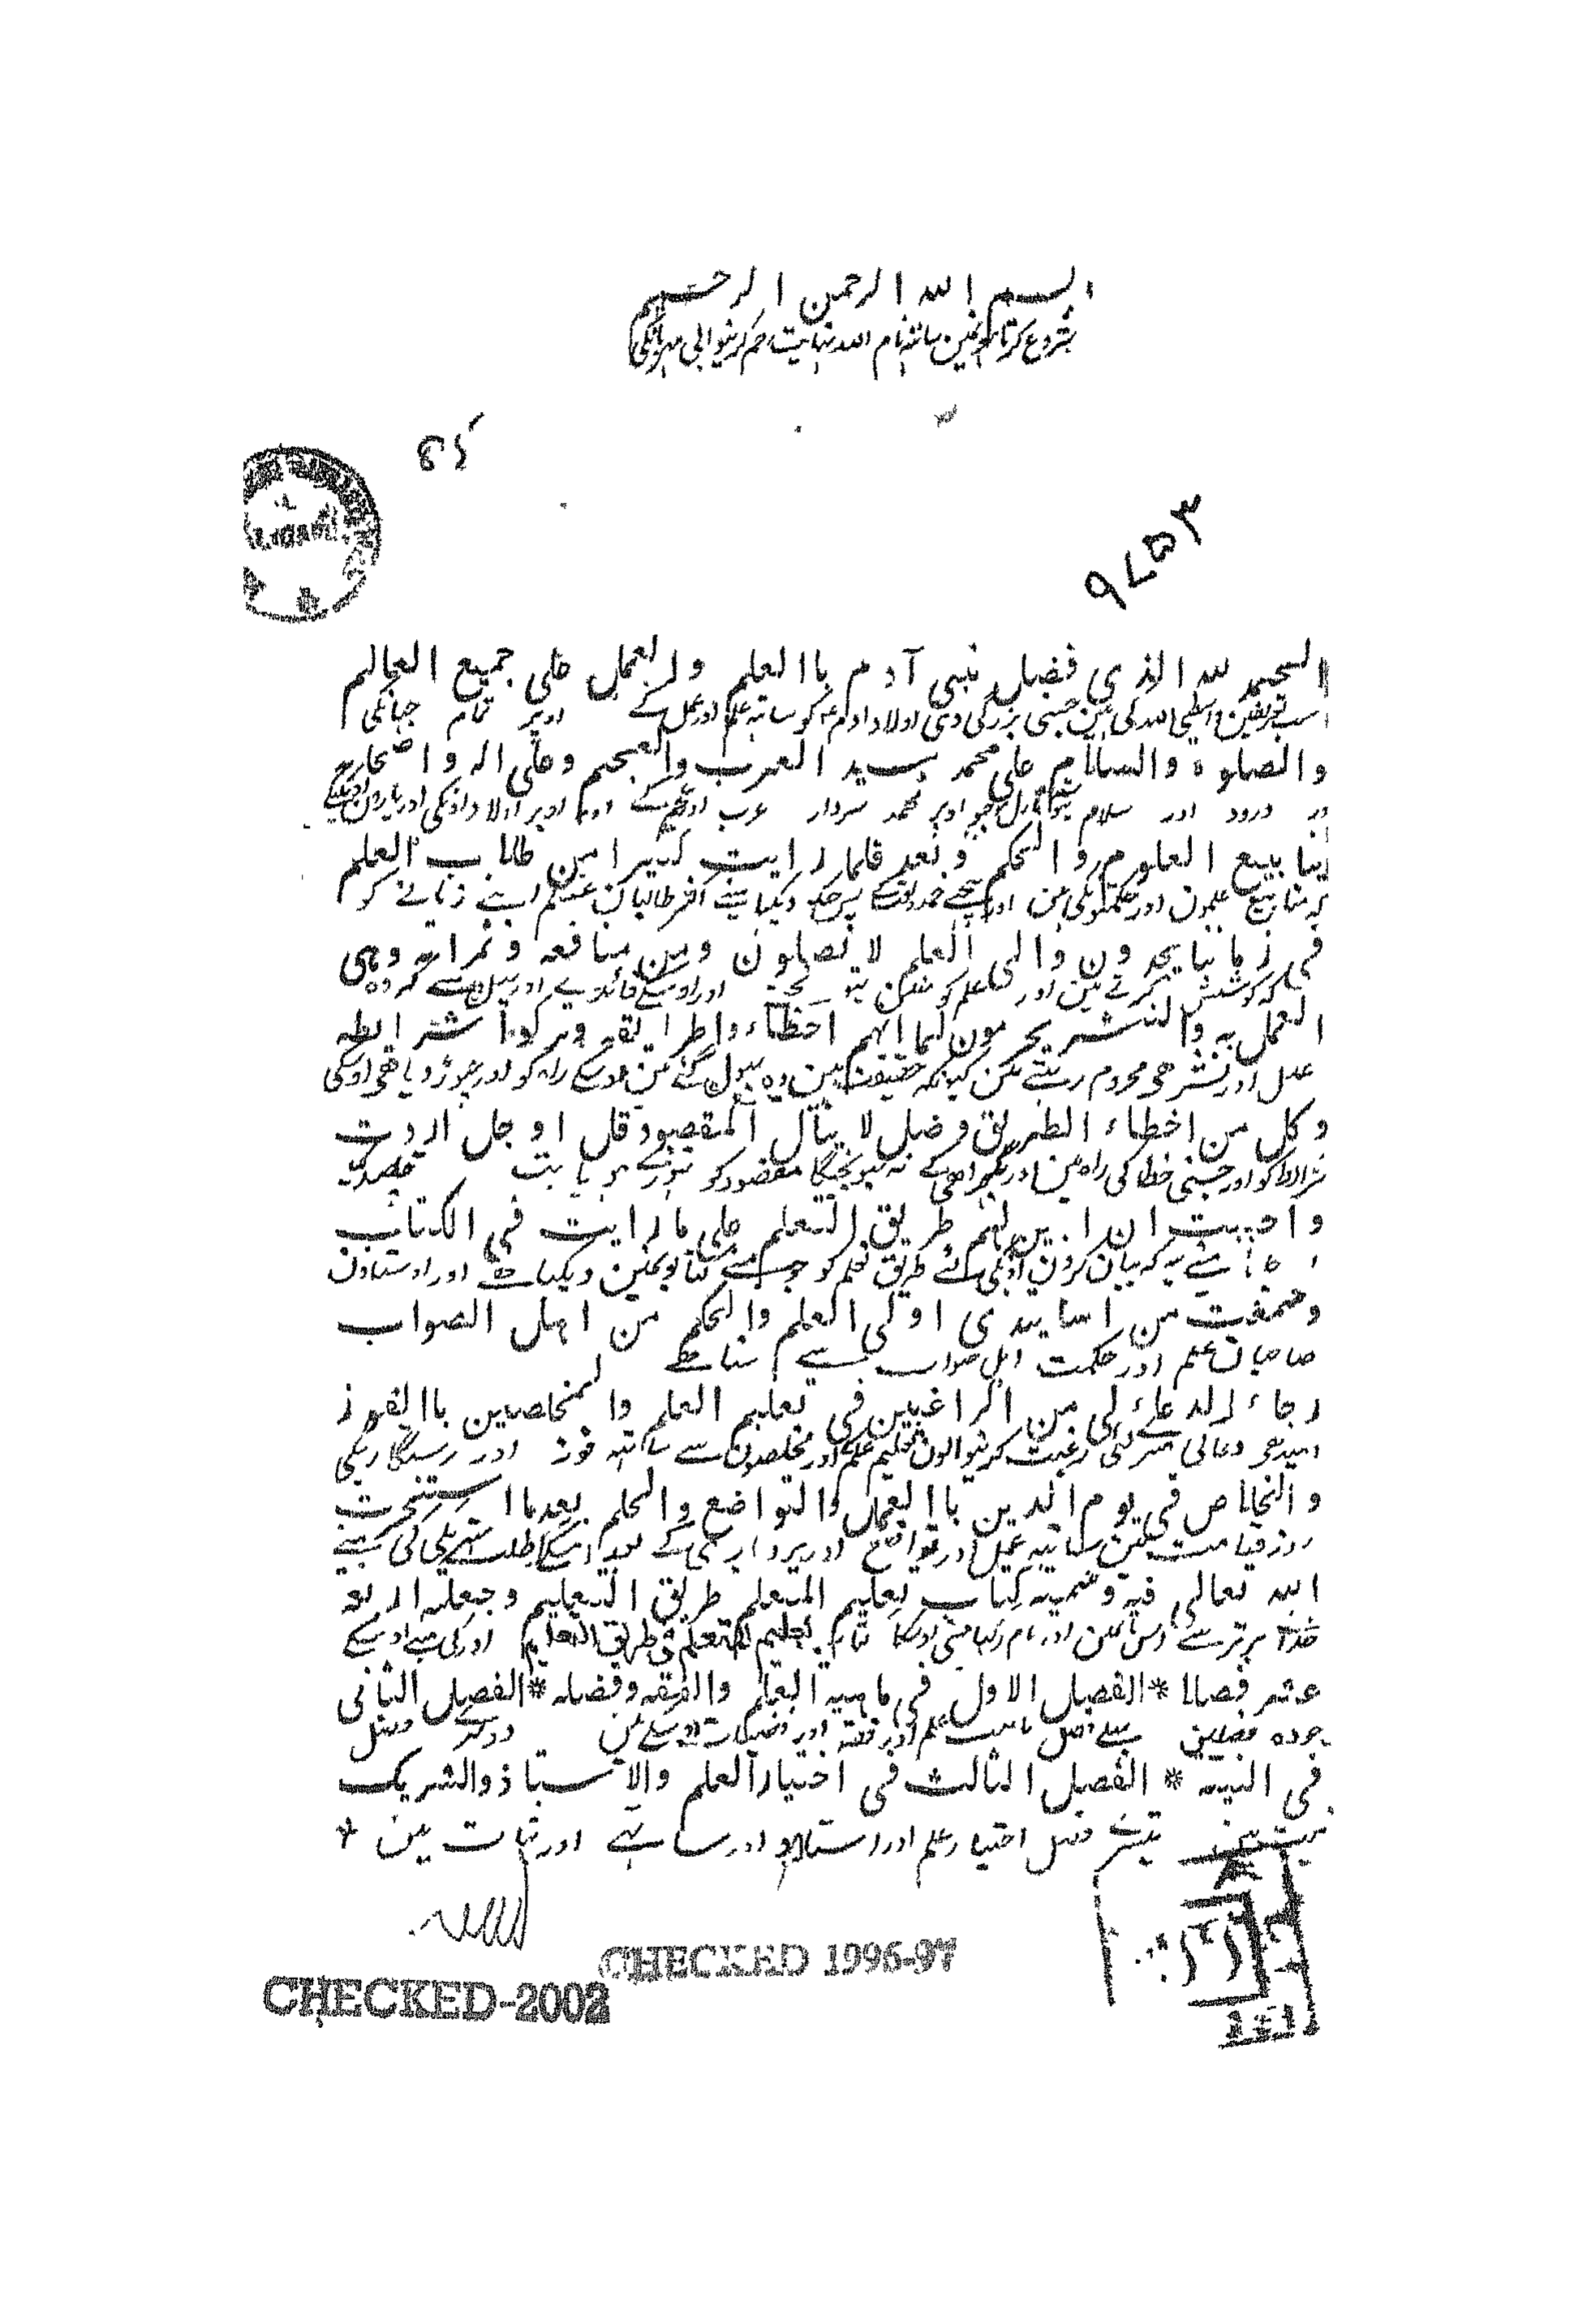 بسم الله الرحمن الرحيم
شروع كرتا ہونمین ساتہہ نام الله نہایت رحم كرنیوالی مہربانكی
٩٧٥٣
الحمد لله الذي فضل بني آدم باالعلم والعمل علي جميع العالم
سب تعریفین واسطی الله كی ہین جسنی بزرگی دی اولاد ادم كو ساتہہ علم اور عمل كے اوپر تمام جہانكی
والصلوة والسلام علي محمد سيد العرب والعجم وعلي اله واصحابه
درود اور سلام اوپر محمد سردار عرب اور عجم كے اور اوپر اولاد اونكی اور یارون
ينابيع العلوم والحكم وبعد فلما رايت كثيرا من طلاب العلم
علمون اور حكمتونكی ہین اور پیچھے حمد ونعت كے پس جبكہ دیكہا مینے اكثر طالبان علم اپنے زمانے كو
في زماننا يجدون والي العلم لا يصلون ومن منافعه وثمراته وهي
كہ كوشش كرتے ہین اور علم كو اور اوسكے فائدے اور پہل سے كہ وہ
العمل به والنشر يحرمون لما انهم اخطاء واطرايقه وتركوا شرايطه
عمل اور نشر ہی محروم رہتے ہین كیونكہ حقیقت مین وہ بہول گئے ہین اوسكے راہ كو اور چہوڑ دیا ہی اوسكی
وكل من اخطاء الطريق وضل لا ينال المقصود قل او جل اردت
شرائط كو اور جسنی خطا كی راہ مین اور گمراہی كے نہ پہونچیگا مقصود كو تہوڑے ہو یا بہت قصد كیا
واحببت ان ابين لهم طريق التعلم علي ما رايت في الكتاب
مینے یہ كہ بیان كرون اونكی لئے طریق تعلم كو جو مینے كتابونمین دیكہا ہے اور اوستادون
وسمعت من اساتيذي اولي العلم والحكم من اهل الصواب
صاحبان علم اور حكمت اہل صواب سے سنا ہے
رجاء الدعاء لي من الراغبين في تعليم العلم والمخلصين باالفوز
امید ہی دعا كی میرے لئی رغبت كرنیوالون تعلیم علم اور مخلصون سے ساتہہ فوز اور رستگاریكی
والخلاص في يوم الدين باالعمل والتواضع والحلم بعدما استخرت
روز قیامت مین ساتہہ عمل اور تواضع اور بردباری كے بعد اسكے طلب بہتریكی كی مینے
الله تعالي فيه وسميته كتاب تعليم المتعلم طريق التعليم وجعلته اربعة
خدا برتر سے اوس مین اور نام ركہا مینی اوسكا كتاب تعليم المتعلم في طريق التعليم اور كی مینے اوسكے
عشر فصلا * الفصل الاول في ماهية العلم والفقه وفضله * الفصل الثاني
چودہ فصلین پہلے فصل ماہیت علم اور فقہ اور فضیلت اوسكے مین دوسرے فصل
في النية * الفصل الثالث في اختيار العلم والاستاذ والشريك
نیت مین تیسرے فصل اختیار علم اور استاد اور ساتہی اور ثبات مین *
CHECKED 1996-97
CHECKED-2002